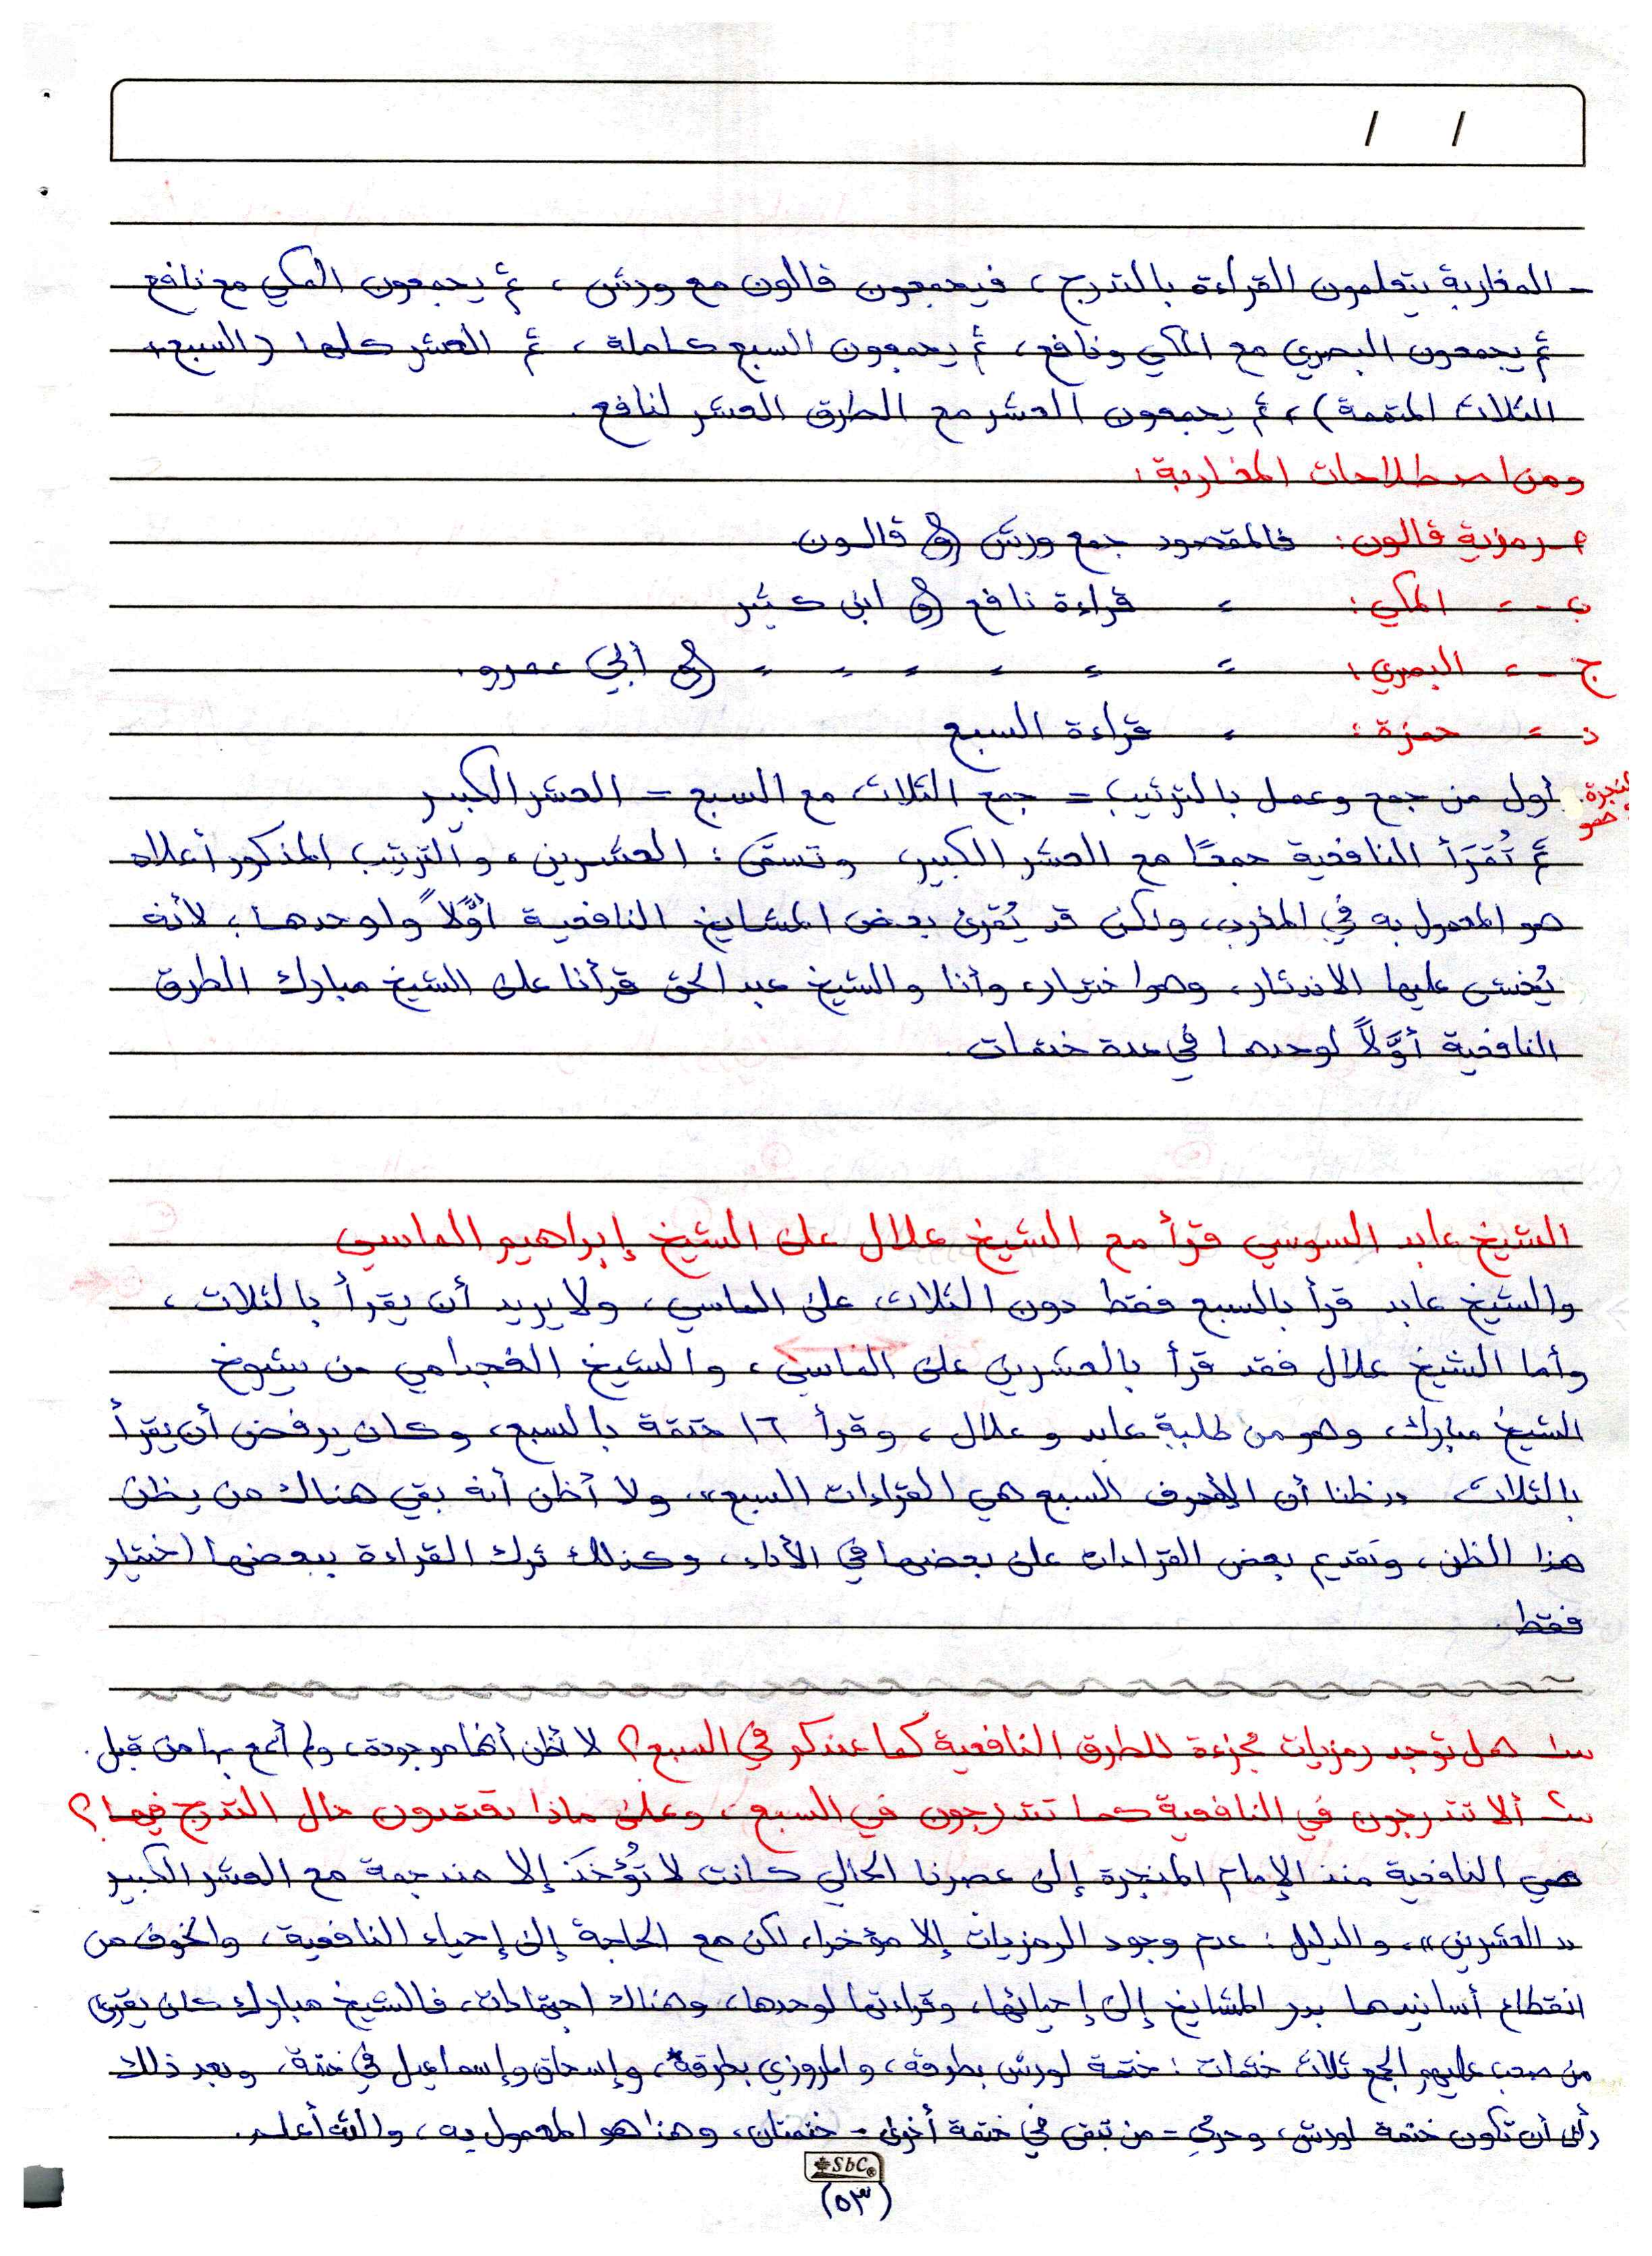 / /
- المغاربة يتعلمون القراءة بالتدرج، فيجمعون قالون مع ورش، ثم يجمعون المكي مع نافع
ثم يجمعون البصري مع المكي ونافع، ثم يجمعون السبع كاملة، ثم العشر كلها (السبع،
الثلاث المتممة)، ثم يجمعون العشر مع الطرق العشر لنافع.
ومن اصطلاحات المغاربة:
م- رمزية قالون: فالمقصود جمع ورش و قالون
ب - = المكي: = قراءة نافع و ابن كثير
ج - = البصري: = = = = = = و أبي عمرو.
د = حمزة: = قراءة السبع
أول من جمع وعمل بالترتيب = جمع الثلاث مع السبع = العشر الكبير
ثم تُقرَأ النافعية جمعًا مع العشر الكبير وتسمَّى: العشرين، والترتيب المذكور أعلاه
هو المعمول به في المغرب، ولكن قد يُقرئ بعض المشايخ النافعية أوَّلاً ولوحدها، لأنه
يُخشى عليها الاندثار، وهو اختيار، وأنا والشيخ عبد الحق قرأنا على الشيخ مبارك الطرق
النافعية أوَّلاً لوحدها في عدة ختمات.
الشيخ عابد السوسي قرأ مع الشيخ علال على الشيخ إبراهيم الماسي
والشيخ عابد قرأ بالسبع فقط دون الثلاث على الماسي، ولا يريد أن يقرأ بالثلاث،
وأما الشيخ علال فقد قرأ بالعشرين على الماسي، والشيخ الفجدامي من شيوخ
الشيخ مبارك، وهو من طلبة عابد وعلال، وقرأ ١٦ ختمة بالسبع، وكان يرفض أن يقرأ
بالثلاث "ظنا أن الأحرف السبع هي القراءات السبع"، ولا أظن أنه بقي هناك من يظن
هذا الظن، وتقديم بعض القراءات على بعضها في الأداء، وكذلك ترك القراءة ببعضها اختيار
فقط.
س١ هل توجد رمزيات مجزءة للطرق النافعية كما عندكم في السبع؟ لا أظن أنها موجودة، ولم أسمع بها من قبل.
س٢ ألا تتدرجون في النافعية كما تتدرجون في السبع، وعلى ماذا تعتمدون حال التدرج فيها؟
هي النافعية منذ الإمام المنجرة إلى عصرنا الحالي كانت لا تُؤخَذ إلا مندمجة مع العشر الكبير
"العشرين"، والدليل: عدم وجود الرمزيات إلا مؤخرا، لكن مع الحاجة إلى إحياء النافعية، والخوف من
انقطاع أسانيدها بدر المشايخ إلى إحيائها، وقراءتها لوحدها، وهناك اجتهادات، فالشيخ مبارك كان يقرئ
من صعب عليهم الجمع ثلاث ختمات: ختمة لورش بطرقه، والمروزي بطرقه، وإسحاق وإسماعيل في ختمة، وبعد ذلك
رأى أن تكون ختمة لورش، وحرمي - من تبقى في ختمة أخرى - ختمتان، وهذا هو المعمول به، والله أعلم.
SbC
(٥٣)